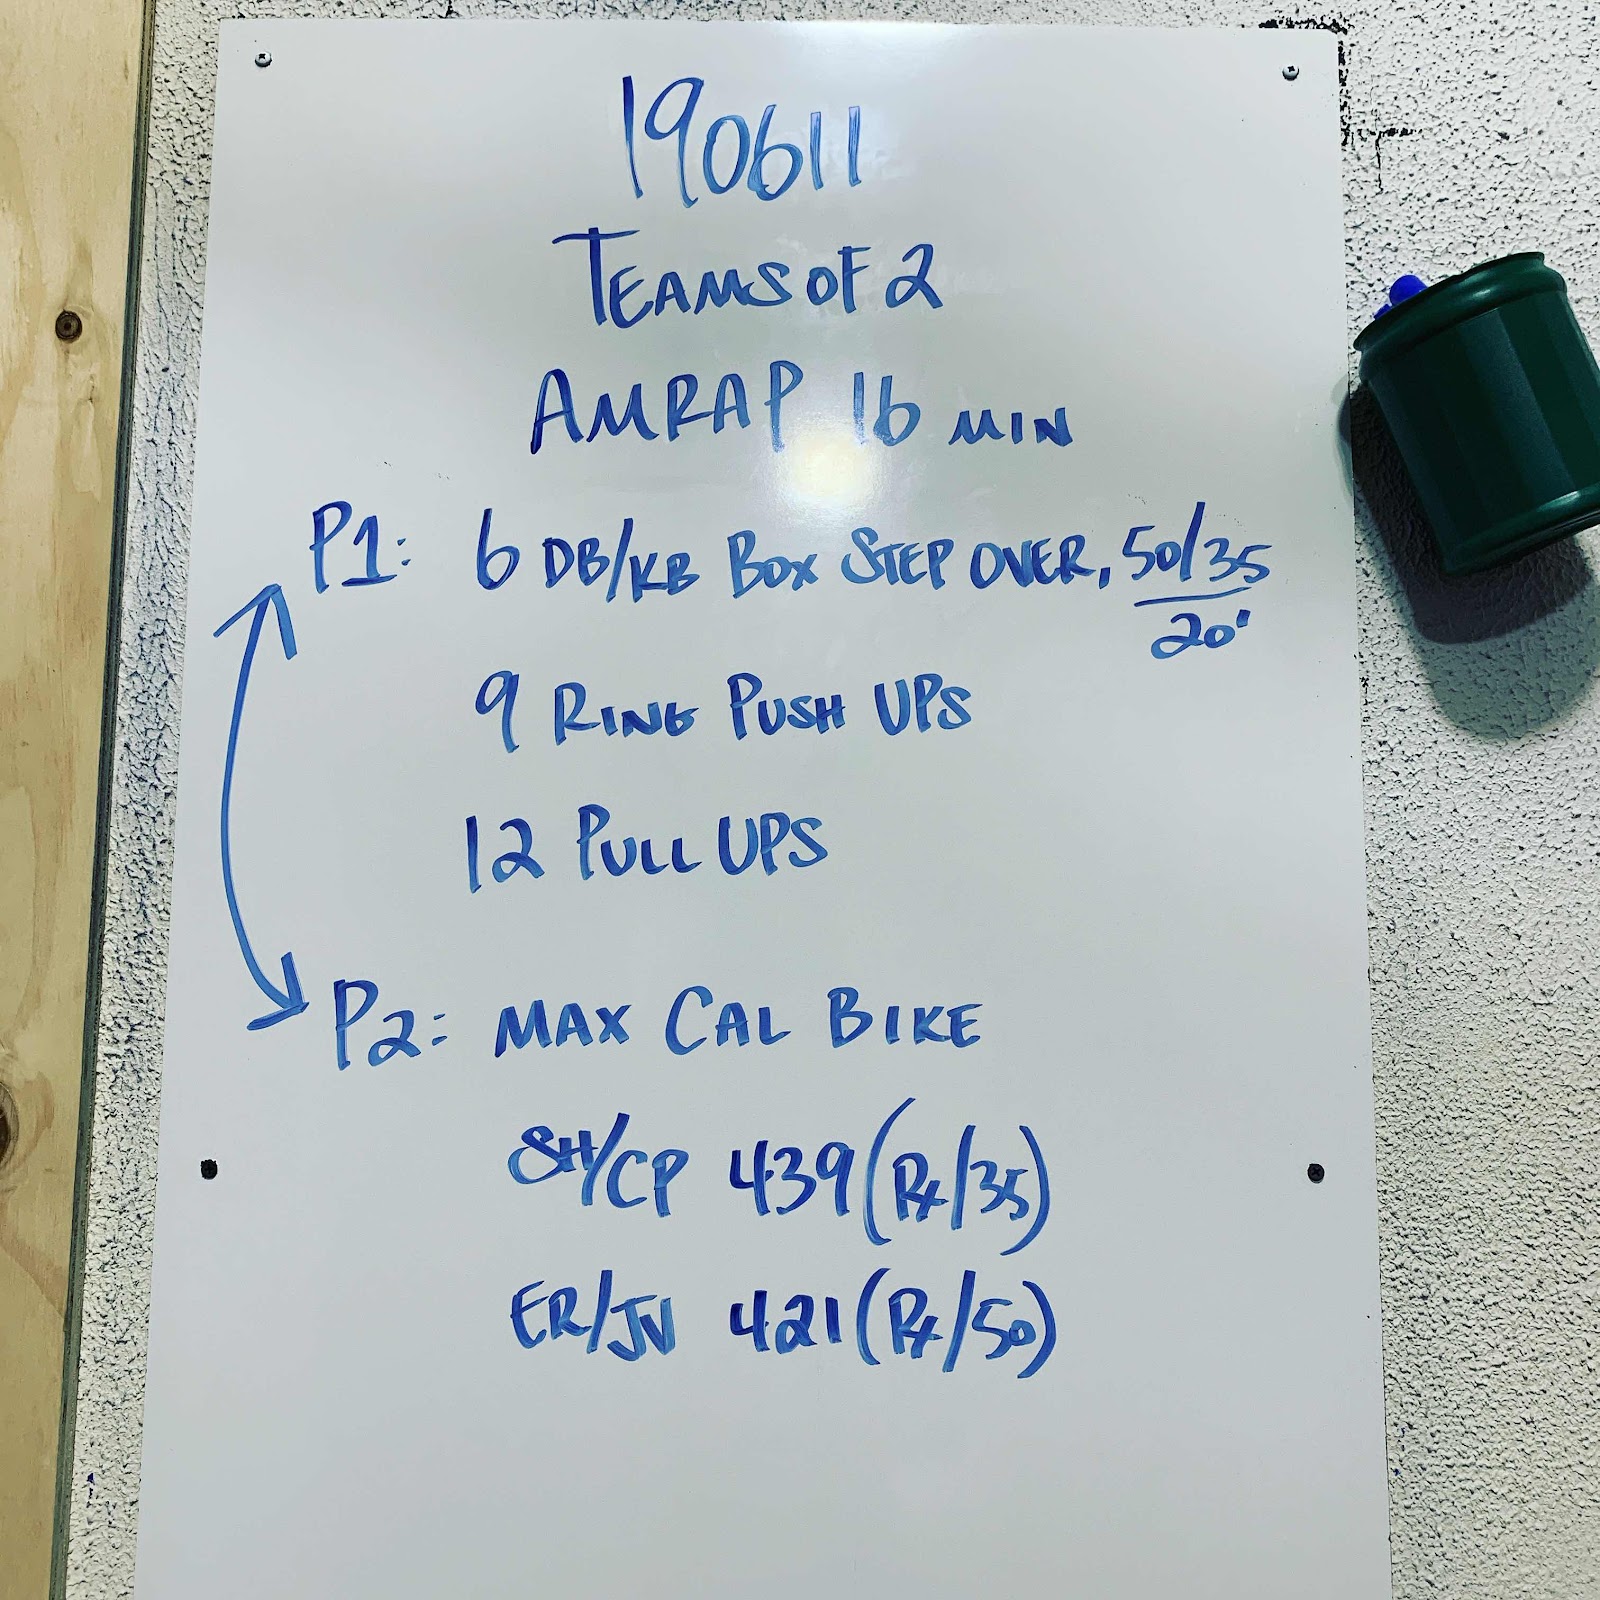 190611
TEAMS OF 2
AMRAP 16 MIN
P1: 6 DB/KB BOX STEP OVER, 50/35
20"
9 RING PUSH UPS
12 PULL UPS
P2: MAX CAL BIKE
SH/CP 439 (Rx/35)
ER/JV 421 (Rx/50)